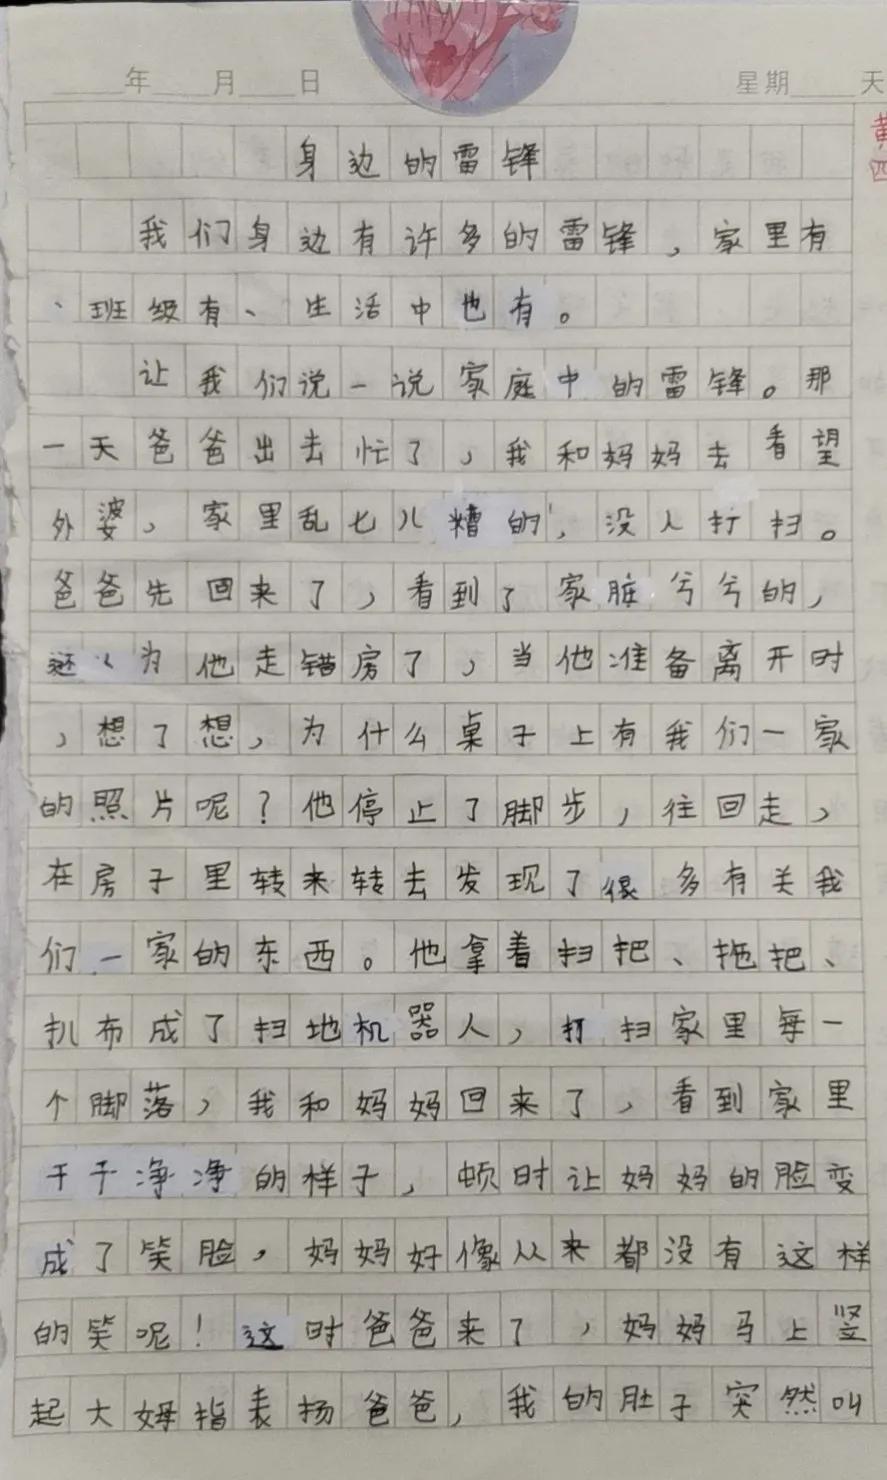 年 月 日 星期 天
黄
四
身边的雷锋
我们身边有许多的雷锋，家里有
、班级有、生活中也有。
让我们说一说家庭中的雷锋。那
一天爸爸出去忙了，我和妈妈去看望
外婆，家里乱七八糟的，没人打扫。
爸爸先回来了，看到了家脏兮兮的，
还以为他走错房了，当他准备离开时
，想了想，为什么桌子上有我们一家
的照片呢？他停止了脚步，往回走，
在房子里转来转去发现了很多有关我
们一家的东西。他拿着扫把、拖把、
扒布成了扫地机器人，打扫家里每一
个脚落，我和妈妈回来了，看到家里
干干净净的样子，顿时让妈妈的脸变
成了笑脸，妈妈好像从来都没有这样
的笑呢！这时爸爸来了，妈妈马上竖
起大姆指表扬爸爸，我的肚子突然叫